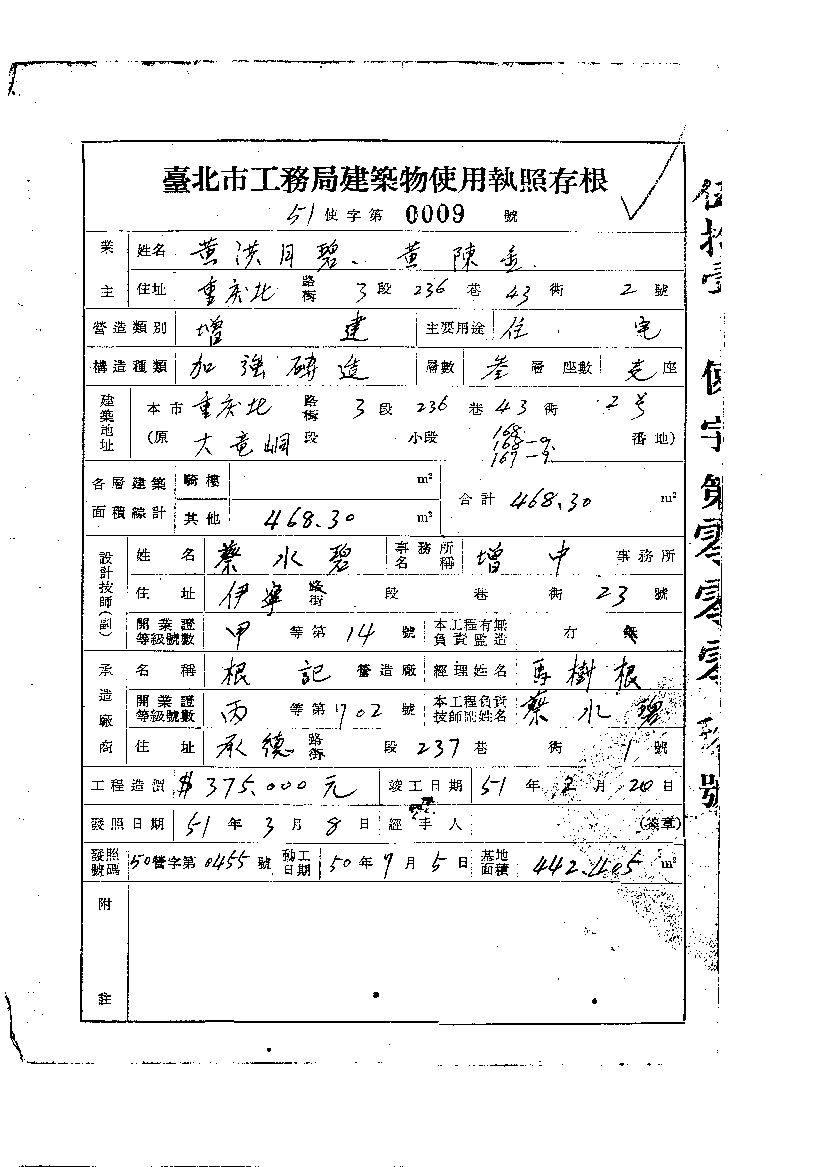 臺北市工務局建築物使用執照存根
51 使字第 0009 號
業主 姓名 黃洪月碧、黃陳金
住址 重慶北 路街 3 段 236 巷 43 衖 2 號
營造類別 增建 主要用途 住宅
構造種類 加強磚造 層數 叁 層 座數 壱 座
建築地址 本市 重慶北 路街 3 段 236 巷 43 衖 2号
(原 大竜峒 段 小段 168 168-9 167-9 番地)
各層建築面積線計 騎樓 m² 合計 468.30 m²
其他 468.30 m²
設計技師(副) 姓名 蔡水碧 事務所名稱 增中 事務所
住址 伊寧 路街 段 巷 衖 23 號
開業證等級號數 甲 等第 14 號 本工程有無負責監造 有
承造廠商 名稱 根記 營造廠 經理姓名 馬樹根
開業證等級號數 丙 等第 702 號 本工程負責技師姓名 蔡水碧
住址 承德 路街 段 237 巷 衖 1 號
工程造價 $375,000元 竣工日期 51 年 2 月 20 日
發照日期 51 年 3 月 8 日 經手人 (簽章)
發照號碼 50營字第0455號 動工日期 50年9月5日 基地面積 442.405 m²
附註
伍拾壹 使字第零零零玖號